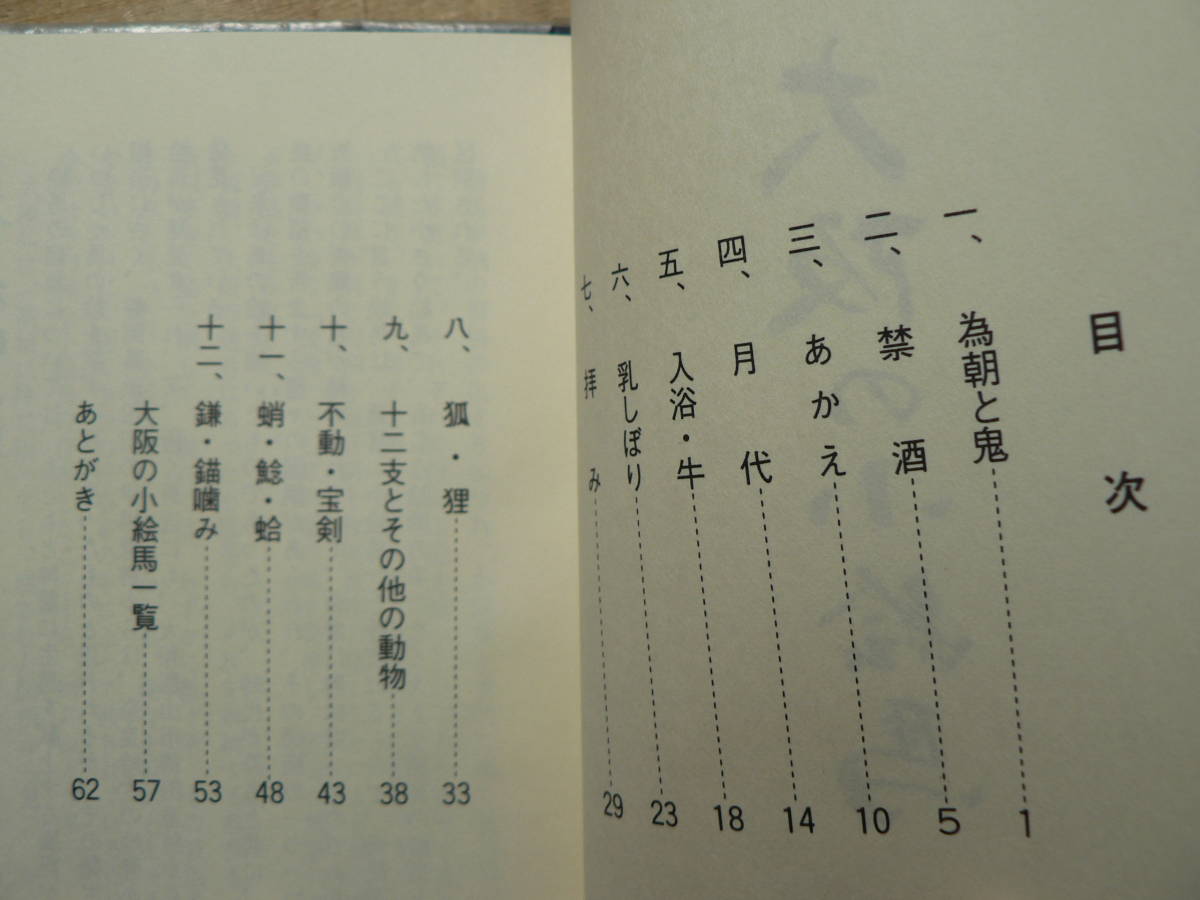 目次
一、為朝と鬼 1
二、禁酒 5
三、あかえ 10
四、月代 14
五、入浴・牛 18
六、乳しぼり 23
七、拝み 29
八、狐・狸 33
九、十二支とその他の動物 38
十、不動・宝剣 43
十一、蛸・鯰・蛤 48
十二、鎌・錨噛み 53
大阪の小絵馬一覧 57
あとがき 62
大阪の小絵馬